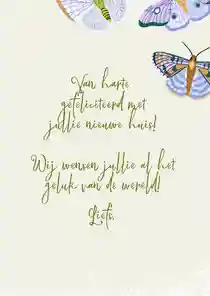 Van harte
gefeliciteerd met
jullie nieuwe huis!
Wij wensen jullie al het
geluk van de wereld!
Liefs,